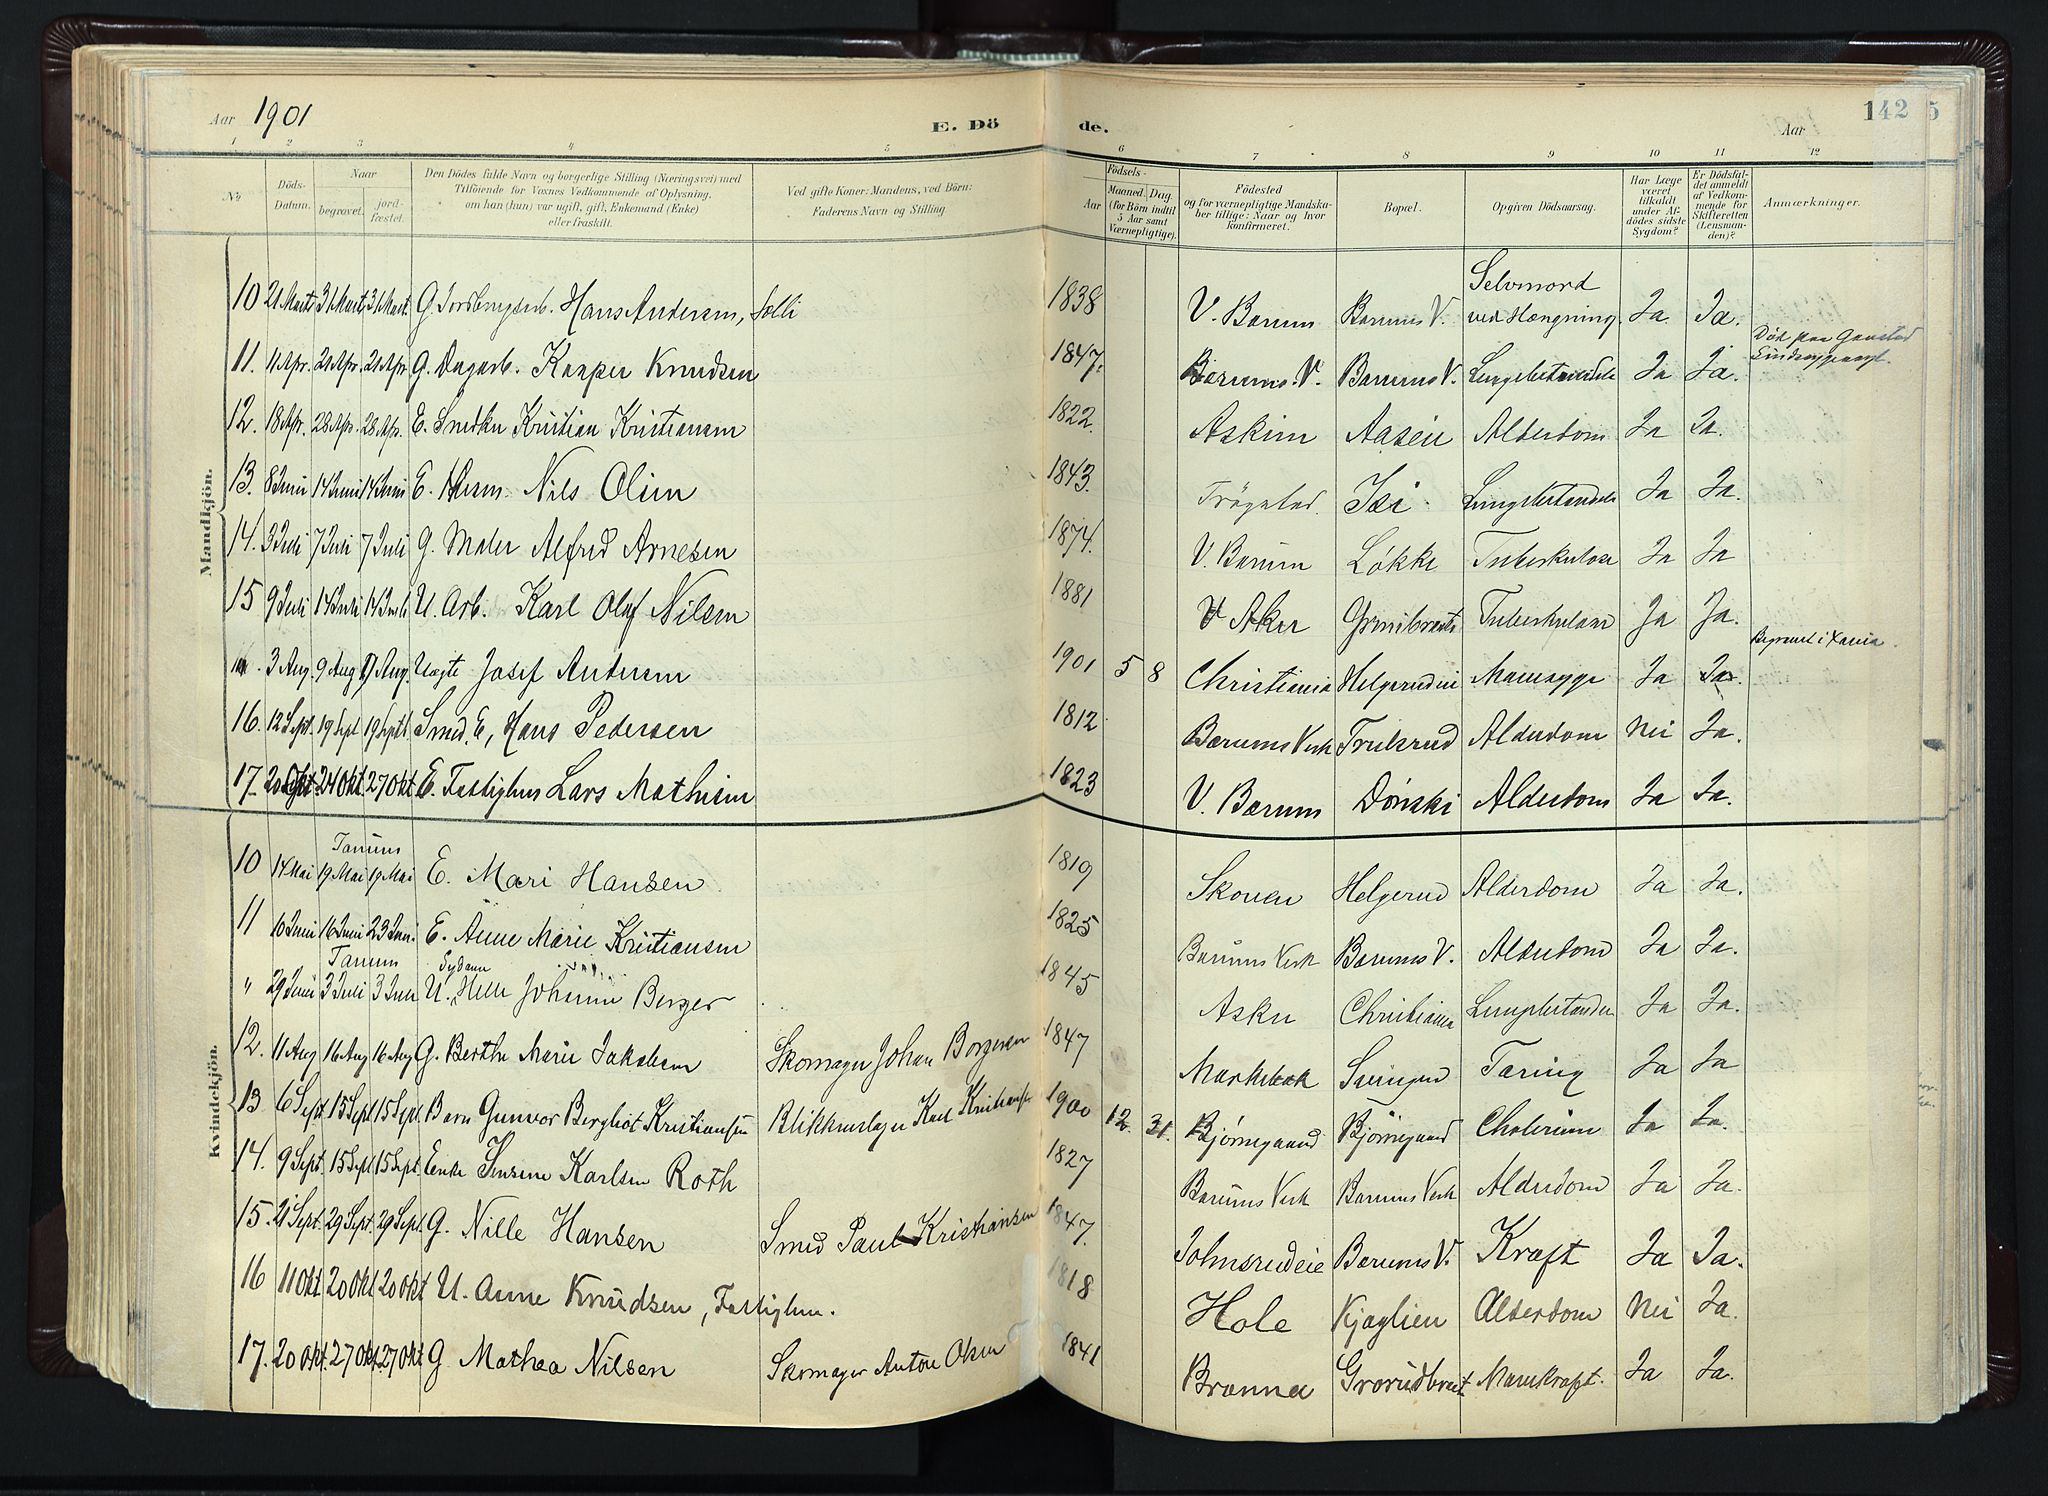 Aar 1901 E. Dö de. Aar 142 5
1 2 3 4 5 6 7 8 9 10 11 12
No. Döds-Datum. Naar begravet. jord-fæstet. Den Dödes fulde Navn og borgerlige Stilling (Næringsvei) med Tilföiende for Voxnes Vedkommende af Oplysning, om han (hun) var ugift, gift, Enkemand (Enke) eller fraskilt. Ved gifte Koner: Mandens, ved Börn: Faderens Navn og Stilling Födsels- Aar Maaned. Dag. (for Börn indtil 5 Aar samt Værnepligtige). Födested og for værnepligtige Mandskaber tillige: Naar og hvor konfirmeret. Bopæl. Opgiven Dödsaarsag. Har Læge været tilkaldt under Afdödes sidste Sygdom? Er Dödsfaldet anmeldt af Vedkommende for Skifteretten (Lensmanden)? Anmærkninger.
Mandkjön.
10 21 Marts 31 Marts 31 Mart. G. Hans Andersen, Solli 1838 V. Bærum Bærums V. Selvmord ved Hængning. Ja. Ja.
11. 11 Apr. 21 Apr. 21 Apr. G. Dagarb. Kasper Knudsen 1847. Bærums. V. Bærums V. Lungebetændelse Ja Ja. Død paa Gaustad Sindsygeasyl.
12. 18 Apr. 28 Apr. 28 Apr. E. Smedku Kristian Kristiansen 1822. Askim Aasen Alderdom Ja Ja.
13. 8 Juni 14 Juni 14 Juni E. Husm. Nils Olsen 1843. Trøgstad. Isi. Lungebetændelse Ja Ja.
14. 3 Juli 7 Juli 7 Juli G. Maler Alfred Arnesen 1874. V. Bærum Løkke Tuberkulose Ja Ja
15 9 Juli 14 Juli 14 Juli U. Arb. Karl Olaf Nilsen 1881 V Aker Grinibraaten Tuberkulose Ja Ja.
3 Aug. 9 Aug 9 Aug. Uægte Josef Andersen 1901 5 8 Christiania Helgerudeie Mavesyge Ja Ja. Begravet i Xania.
16. 12 Sept. 19 Sept 19 Sept. Smed. E, Hans Pedersen 1812 Bærums Verk Trulsrud Alderdom Nei Ja.
17. 20 Okt. 24 Okt 27 Okt E. Fattiglem Lars Mathisen 1823 V. Bærum Dönski Alderdom Ja Ja.
Kvindekjön.
Tanum
10 14 Mai 19 Mai 19 Mai E. Mari Hansen 1819 Skouen Helgerud Alderdom Ja Ja.
11 10 Juni 16 Juni 23 Juni. E. Anne Marie Kristiansen 1825 Bærums Verk Bærums V. Alderdom Ja Ja.
Tanum Sydame
" 29 Juni 3 Juli 3 Juli U. Helle Johanne Berger 1845 Asker Christiania Lungebetændelse Ja Ja.
12. 11 Aug 16 Aug 16 Aug G. Berthe Marie Jakobsen Skomager Johan Borgersen 1847 Markebæk Svingen Tæring Ja Ja
13 6 Sept. 15 Sept 15 Sept. Barn Gunvor Bergliot Kristiansen Blikkenslager Karl Kristiansen 1900 12. 31. Bjørnegaard Bjørnegaard Cholerine Ja Ja.
14. 9 Sept. 15 Sept. 15 Sept. Enke Karlsen Roth 1827 Bærums Verk Bærums Verk Alderdom Ja Ja.
15. 21 Sept. 29 Sept. 29 Sept. G. Nille Hansen Smed Paul Kristiansen 1847. Johnsrudeie Bærums V. Kræft Ja Ja.
16 11 Okt. 20 Okt 20 Okt U. Anne Knudsen, Fattiglem. 1818 Hole Kjaglien Alderdom Nei Ja.
17. 20 Okt. 27 Okt. 27 Okt G. Mathea Nilsen Skomager Anton Olsen 1841 Brænna Grorudbraat Mavekræft. Ja Ja.